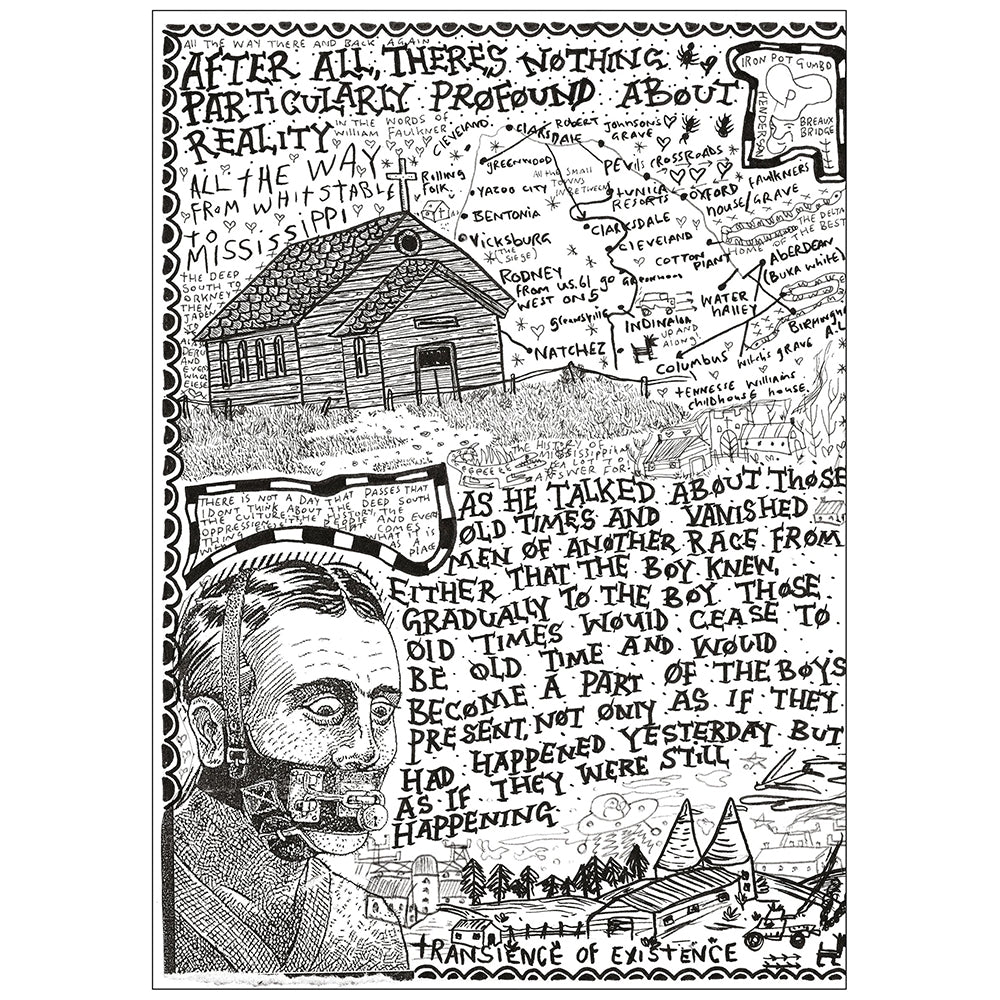 All THE WAY THERE AND BACK AGAIN
AFTER ALL, THERE'S NOTHING
PARTICULARLY PROFOUND ABOUT
REALITY
IN THE WORDS OF
WILLIAM FAULKNER
ALL THE WAY
FROM WHITSTABLE
TO
MISSISSIPPI
THE DEEP
SOUTH TO
ORKNEY
THEN
AND
ELESE
IRON POT GUMBO
HENDERSON
BREAUX
BRIDGE
CLEVELAND
CLARKSDALE
ROBERT Johnson's
GRAVE
GREENWOOD
All THE SMALL
TOWNS
IN BETWEEN
CROSSROADS
Rolling
FOLK.
YAZOO CITY
tunica
RESORTS
OXFORD
FAULKNERS
HOUSE/GRAVE
BENTONIA
CLARKSDALE
THE DELTA
HOME OF THE BEST
VICKSBURG
(THE
SIEGE)
CLEVELAND
COTTON
PLANT
ABERDEAN
(BUKA WHITE)
RODNEY
FROM U.S. 61 go
WEST ON 5
GREENSVILLE
WATER
VALLEY
INDINALOA
UP AND
ALONG!
NATCHEZ
COLUMBUS
WITCH'S GRAVE
TENNESSE WILLIAMS
CHILDHOUSE HOUSE.
THE HISTORY OF
MISSISSIPPI
A LOT TO
ANSWER FOR.
THERE IS NOT A DAY THAT PASSES THAT
I DONT THINK ABOUT THE DEEP SOUTH
THE CULTURE, THE HISTORY, THE
OPPRESSION, THE PEOPLE AND EVERY
THING ELSE THAT COMES
WHAT IT IS
AS A
PLACE
AS HE TALKED ABOUT THOSE
OLD TIMES AND VANISHED
MEN OF ANOTHER RACE FROM
EITHER THAT THE BOY KNEW,
GRADUALLY TO THE BOY THOSE
OlD TIMES WOUlD CEASE TO
BE OLD TIME AND WOULD
BECOME A PART OF THE BOYS
PRESENT, NOT ONLY AS IF THEY
HAD HAPPENED YESTERDAY BUT
AS IF THEY WERE STILL
HAPPENING
TRANSIENCE OF EXISTENCE